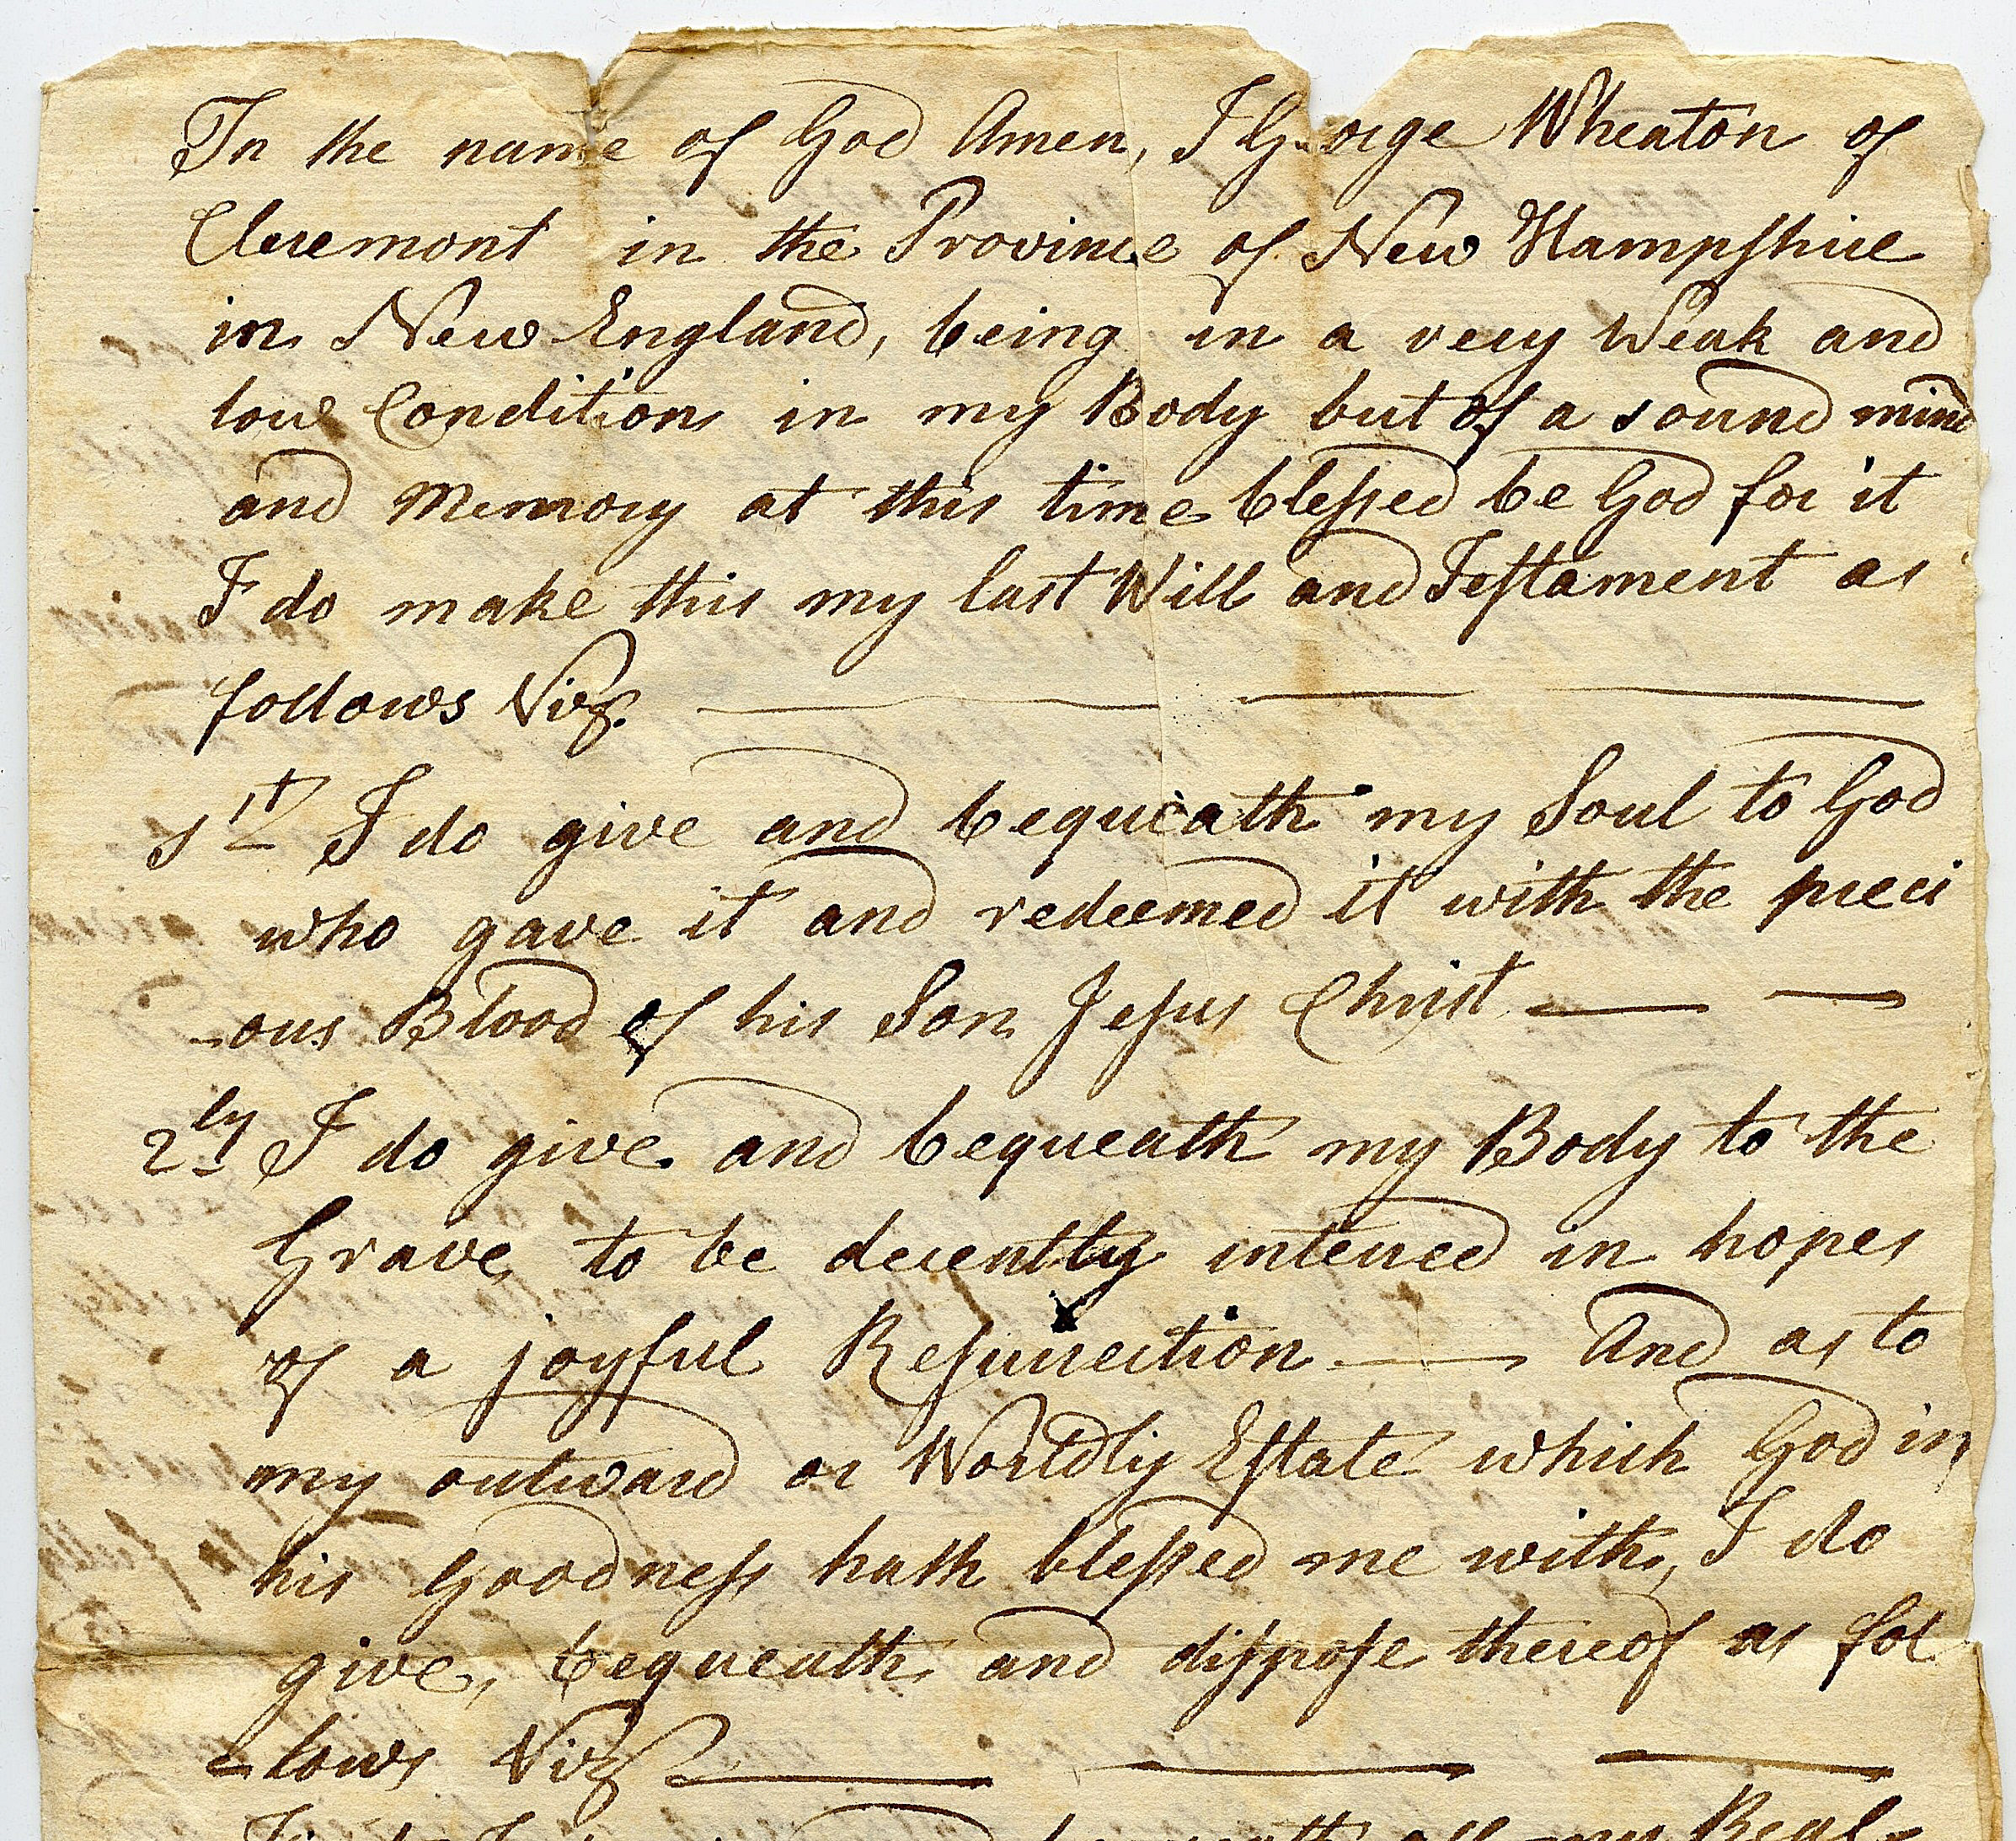 In the name of God Amen, I George Wheaton of
Claremont in the Province of New Hampſhire
in New England, being in a very Weak and
low Condition in my Body but of a sound mind
and Memory at this time bleſsed be God for it
I do make this my last Will and Teſtament as
follows Viz.
1st I do give and bequeath my Soul to God
who gave it and redeemed it with the preci
-ous Blood of his Son Jeſus Christ
2ly I do give and bequeath my Body to the
Grave to be decently interred in hopes
of a joyful Reſurrection And as to
my outward or Worldly Eſtate which God in
his Goodneſs hath bleſsed me with, I do
give, bequeath and diſpoſe thereof as fol
-lows Viz
bequeath all my Real